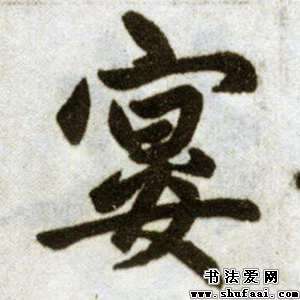 宴
书法爱网
www.shufaai.com